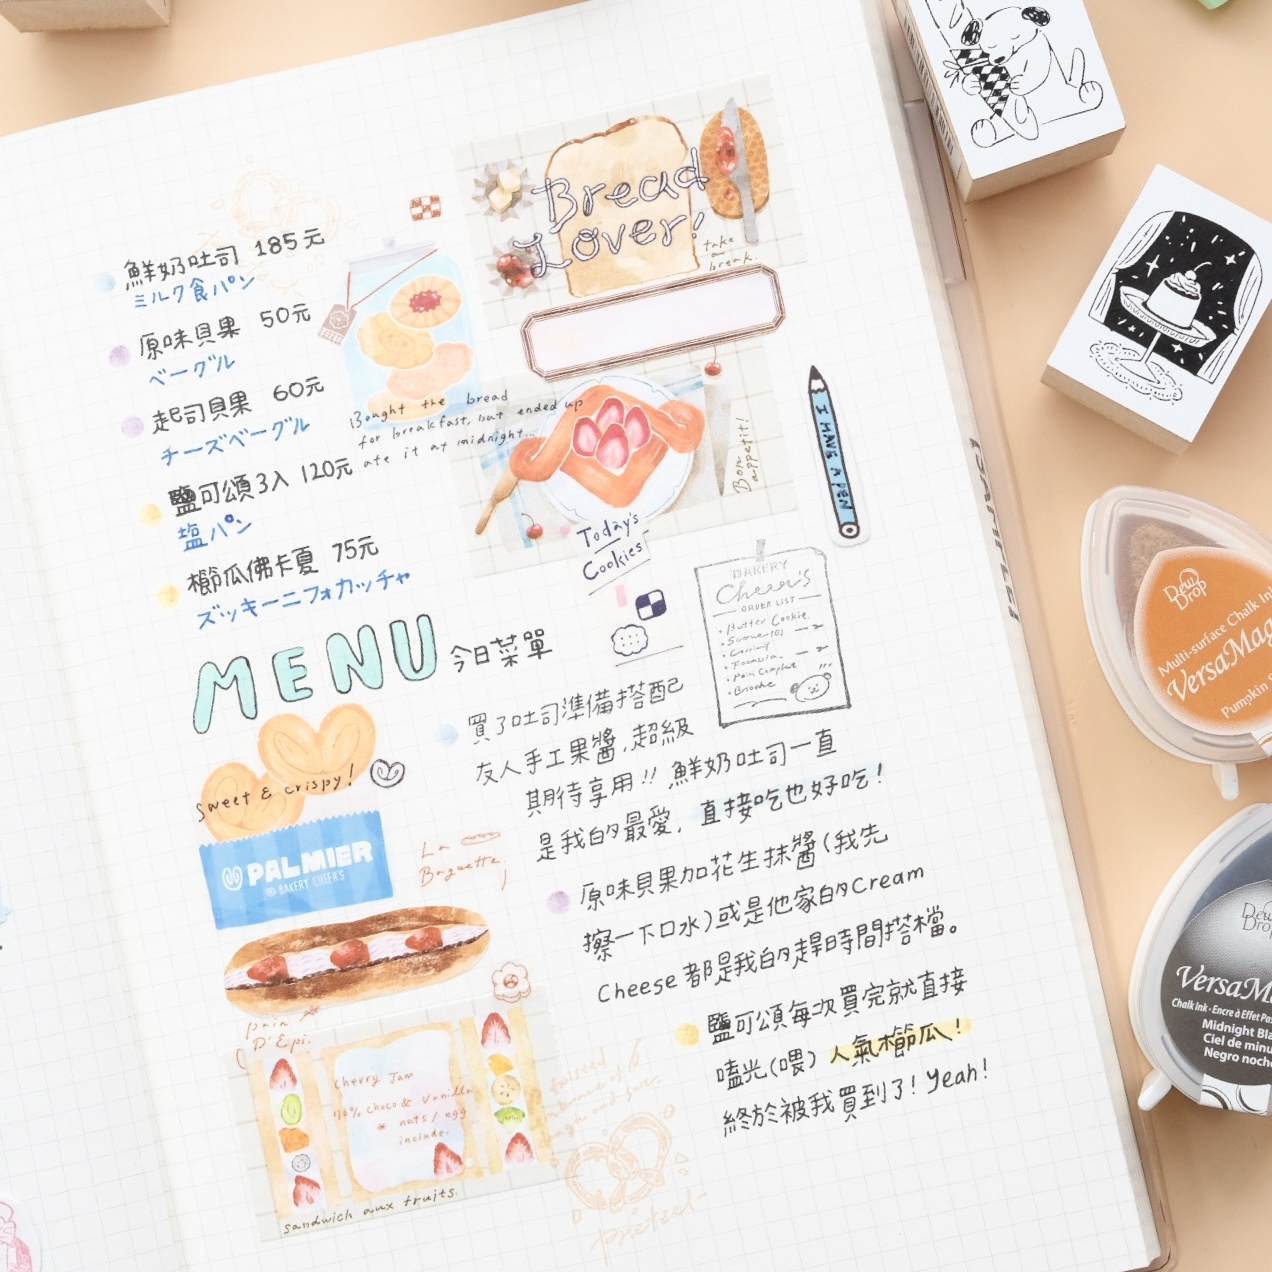 鮮奶吐司 185元
ミルク食パン
原味貝果 50元
ベーグル
起司貝果 60元
チーズベーグル
鹽可頌3入 120元
塩パン
櫛瓜佛卡夏 75元
ズッキーニフォカッチャ
MENU 今日菜單
Bread
Lover!
take
a
break.
Bought the bread
for breakfast, but ended up
ate it at midnight...
Bon
appetit!
Today's
Cookies
I HAVE A PEN
BAKERY
Cheer's
ORDER LIST
Butter Cookie
Focaccia
Pain Complet
Brioche
買了吐司準備搭配
友人手工果醬,超級
期待享用!! 鮮奶吐司一直
是我的最愛,直接吃也好吃!
原味貝果加花生抹醬(我先
擦一下口水)或是他家的Cream
Cheese都是我的趕時間搭檔。
鹽可頌每次買完就直接
嗑光(喂)人氣櫛瓜!
終於被我買到了!Yeah!
Sweet & crispy!
PALMIER
BAKERY CHEER'S
La
Baguette,
pain
D'Epi.
Cherry Jam
70% choco & Vanilla
* nuts / egg
include.
sandwich aux fruits.
twisted
pretzel
Dew
Drop
Multi-surface Chalk Ink
VersaMag
Pumpkin S
Dew
Drop
VersaM
Chalk Ink · Encre à Effet Pas
Midnight Bla
Ciel de minu
Negro noch